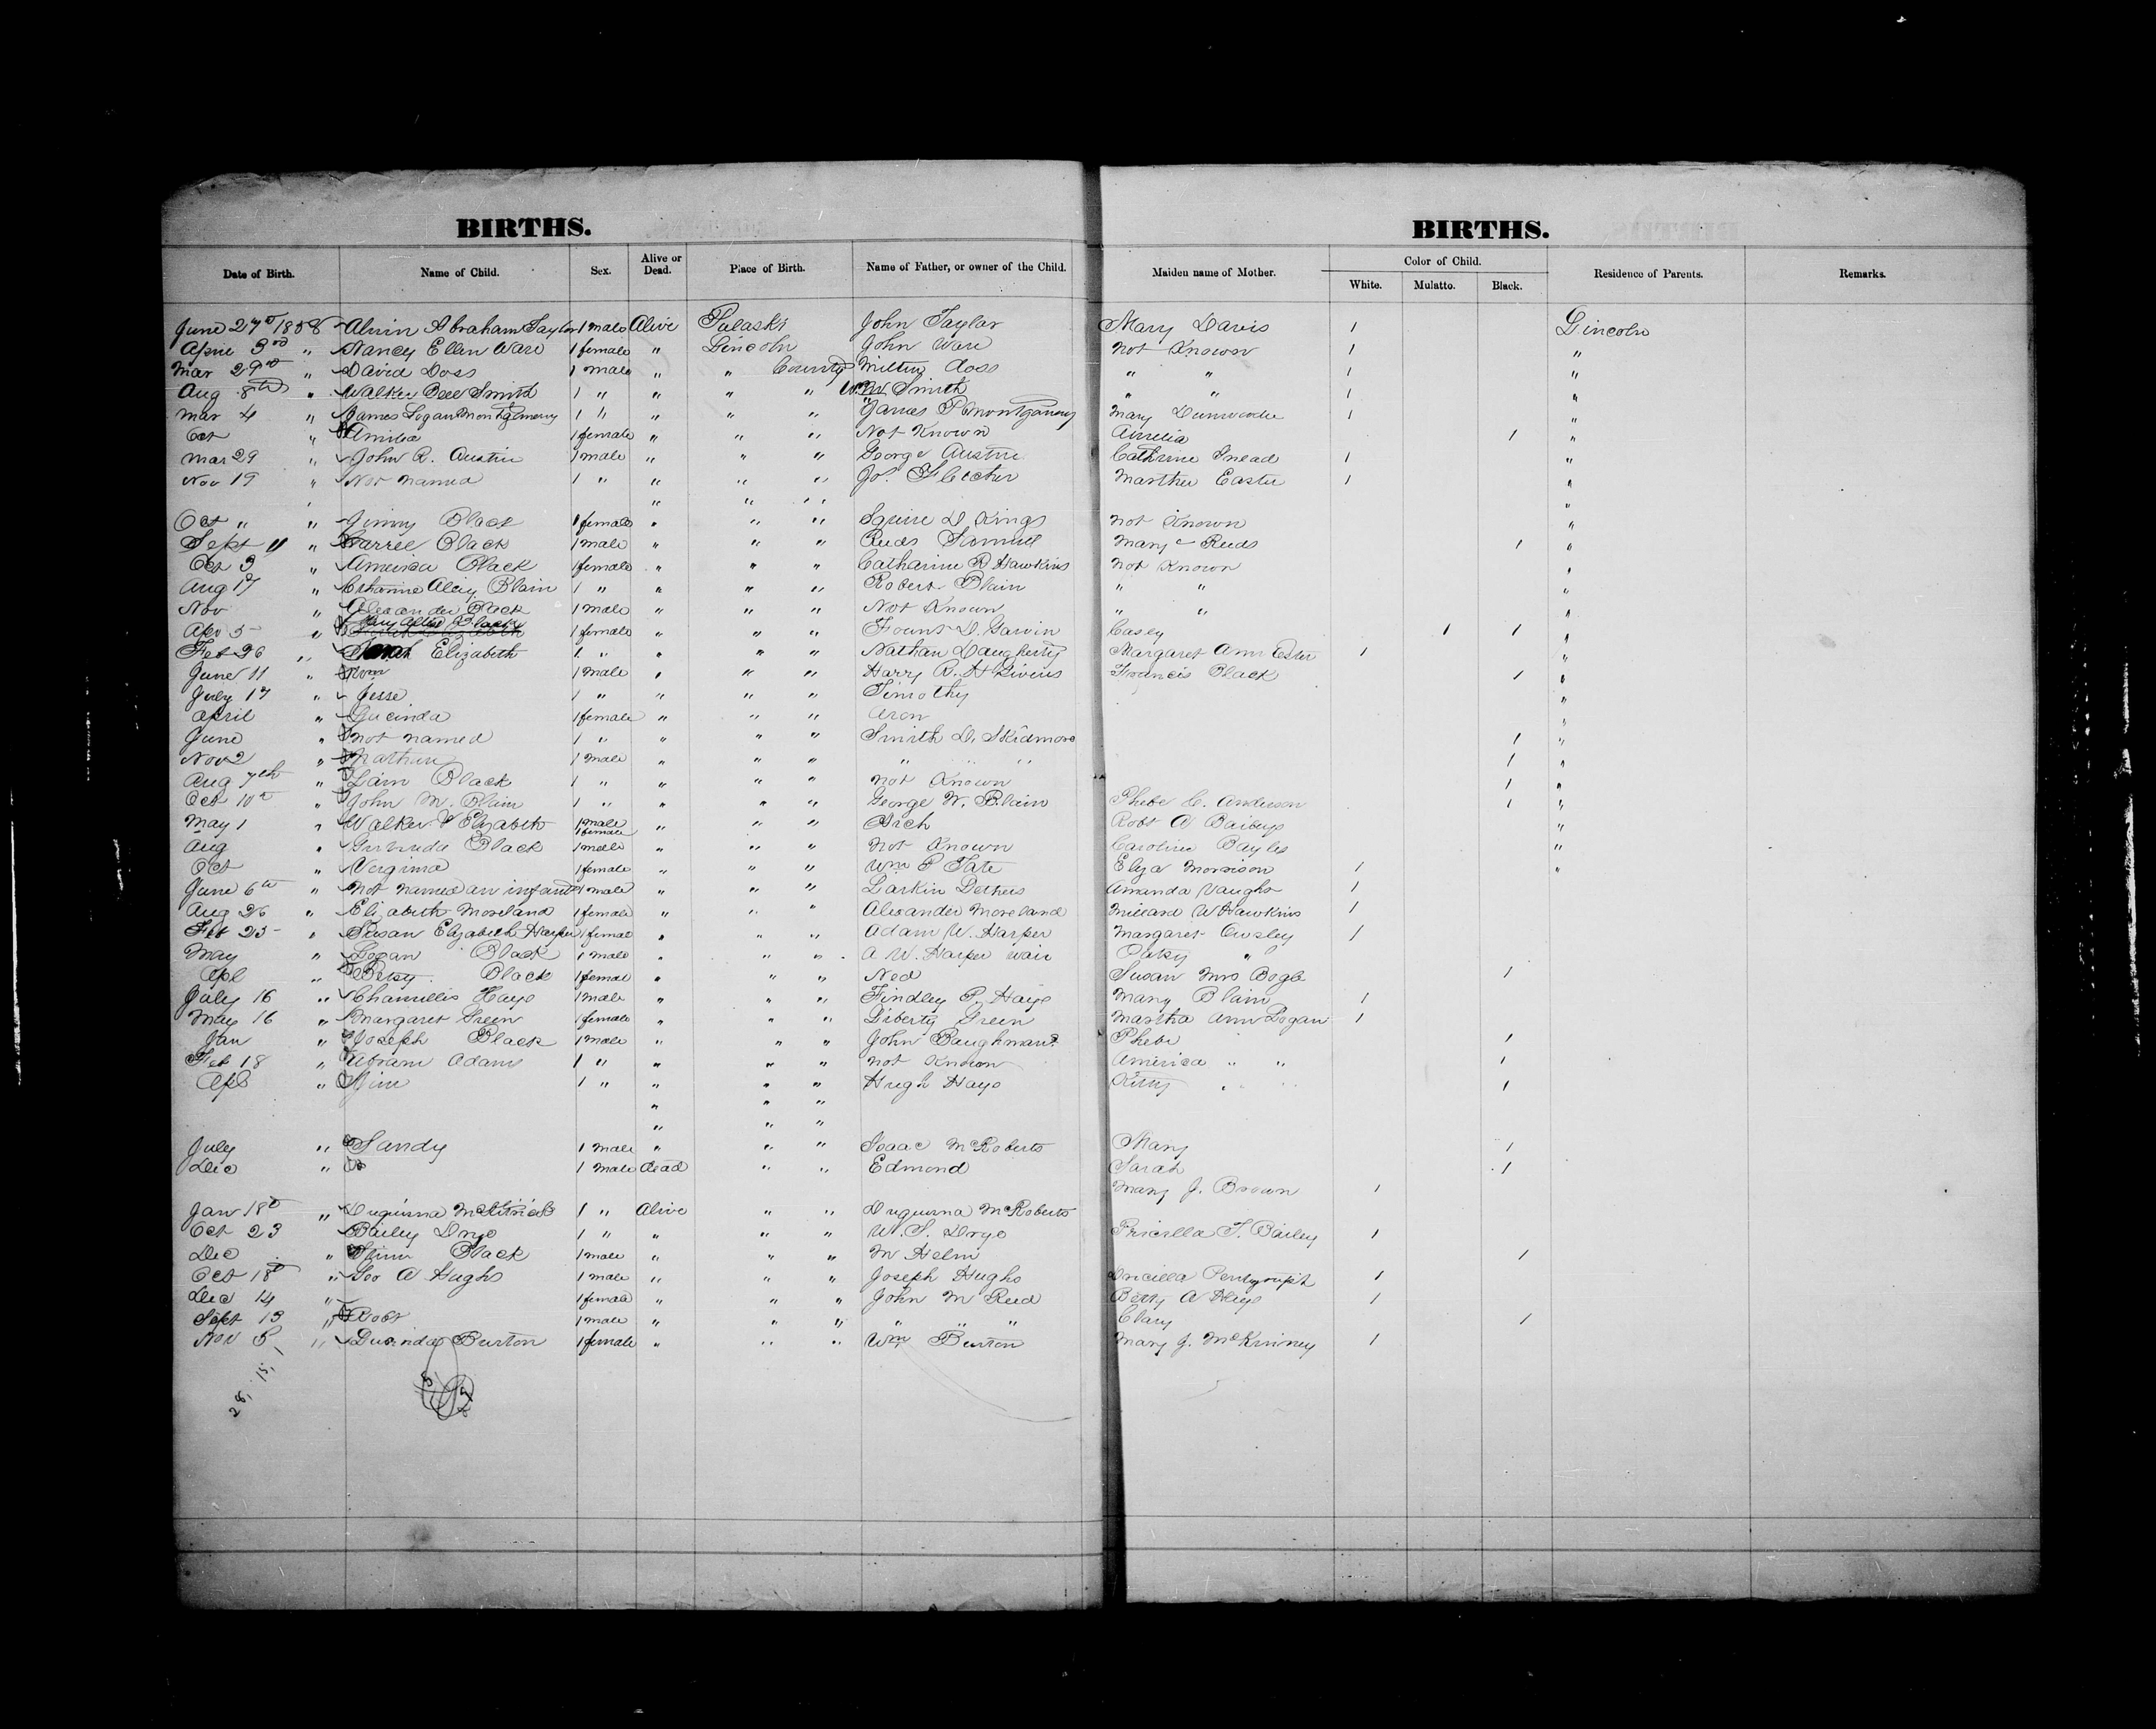 BIRTHS. BIRTHS.
Date of Birth. Name of Child. Sex. Alive or Dead. Place of Birth. Name of Father, or owner of the Child. Maiden name of Mother. Color of Child. White. Mulatto. Black. Residence of Parents. Remarks.
June 27th 1858 Alvin Abraham Taylor 1 male Alive Pulaski John Taylor Mary Davis 1 Lincoln
April 3rd " Nancy Ellen Ware 1 female " Lincoln John Ware not Known 1 "
Mar 29th " David Doss 1 male " " County Milton Doss " " 1 "
Aug 8th " Walker Bell Smith 1 " " " " Wm Smith " " 1 "
Mar 4 " James Logan Montgomery 1 " " " " James P Montgomery Mary 1 "
Oct " 1 female " " " Not Known Amelia 1 "
Mar 29 " John R. Austin 1 male " " " George Austin Cathrine Snead 1 "
Nov 19 " Not named 1 " " " " Jo. Fletcher Marthu Easter 1 "
" " " "
Oct " " Jinny Black 1 female " " " Squire D Kings not Known "
Sept 11 " Black 1 male " " " Reids Samuel Mary Reids 1 "
Oct 3 " America Black 1 female " " " Catharine R Hawkins not Known "
Aug 17 " Catharine Alcy Blain 1 " " " " Robert Blain " " "
Nov " Alexander Black 1 male " " " Not Known " " "
Apr 5 " Mary Alles Black 1 female " " " Fount D. Garvin Casey 1 1 "
Feb 26 " Sarah Elizabeth 1 " " " " Nathan Daugherty Margaret Ann Ester 1 "
June 11 " 1 male " " " Harry A. H Givins Francis Black 1 "
July 17 " Jesse 1 " " " " Timothy "
April " Lucinda 1 female " " " Aron "
June " not named 1 " " " " Smith D. Skidmore 1 "
Nov 2 " 1 male " " " " " " 1 "
Aug 7th " Black 1 " " " " not Known 1 "
Oct 10th " John M. Blain 1 " " " " George W. Blain Phebe C. Anderson 1 "
May 1 " Walker & Elizabeth 1 male 1 female " " " Arch Robt A "
Aug " Black 1 male " " " Not Known Caroline Bayles "
Oct " Virginia 1 female " " " Wm P Tate Eliza Morrison 1 "
June 6th " Not named an infant 1 male " " " Larkin Amanda Vaughn 1
Aug 26 " Elizabeth Moreland 1 female " " " Alexander Moreland W Hawkins 1
Feb 25 " Susan Elizabeth Harper 1 female " " " Adam W. Harper Margaret Owsley 1
May " Logan Black 1 male " " " A W. Harper Patsy "
Apl " Betsy Black 1 female " " " Ned Susan Mrs Bogle 1
July 16 " Hays 1 male " " " Findley P. Hays Mary Blain 1
May 16 " Margaret Green 1 female " " " Liberty Green Martha Ann Logan 1
Jan " Joseph Black 1 male " " " John Baughman Phebe 1
Feb 18 " Abram Adam 1 " " " " not Known America " " 1
Apl " Jim 1 " " " " Hugh Hays Kitty " 1
" " "
" " "
July " Sandy 1 male " " " Isaac McRoberts Mary 1
Dec " 1 male dead " " Edmond Sarah 1
Mary J. Brown 1
Jan 18th " 1 " Alive " " McRoberts
Oct 23 Bailey Drye 1 " " " " W. S. Drye Pricilla T. Bailey 1
Dec " Black 1 male " " " M Helm 1
Oct 18th " Geo A Hughs 1 male " " " Joseph Hughs 1
Dec 14 " 1 female " " " John M Reed Betty A Hays 1
Sept 13 " Robt 1 male " " " " " " Clary 1
Nov 8 " Burton 1 female " " " Wm Burton Mary J. McKinney 1
28, 15, 1